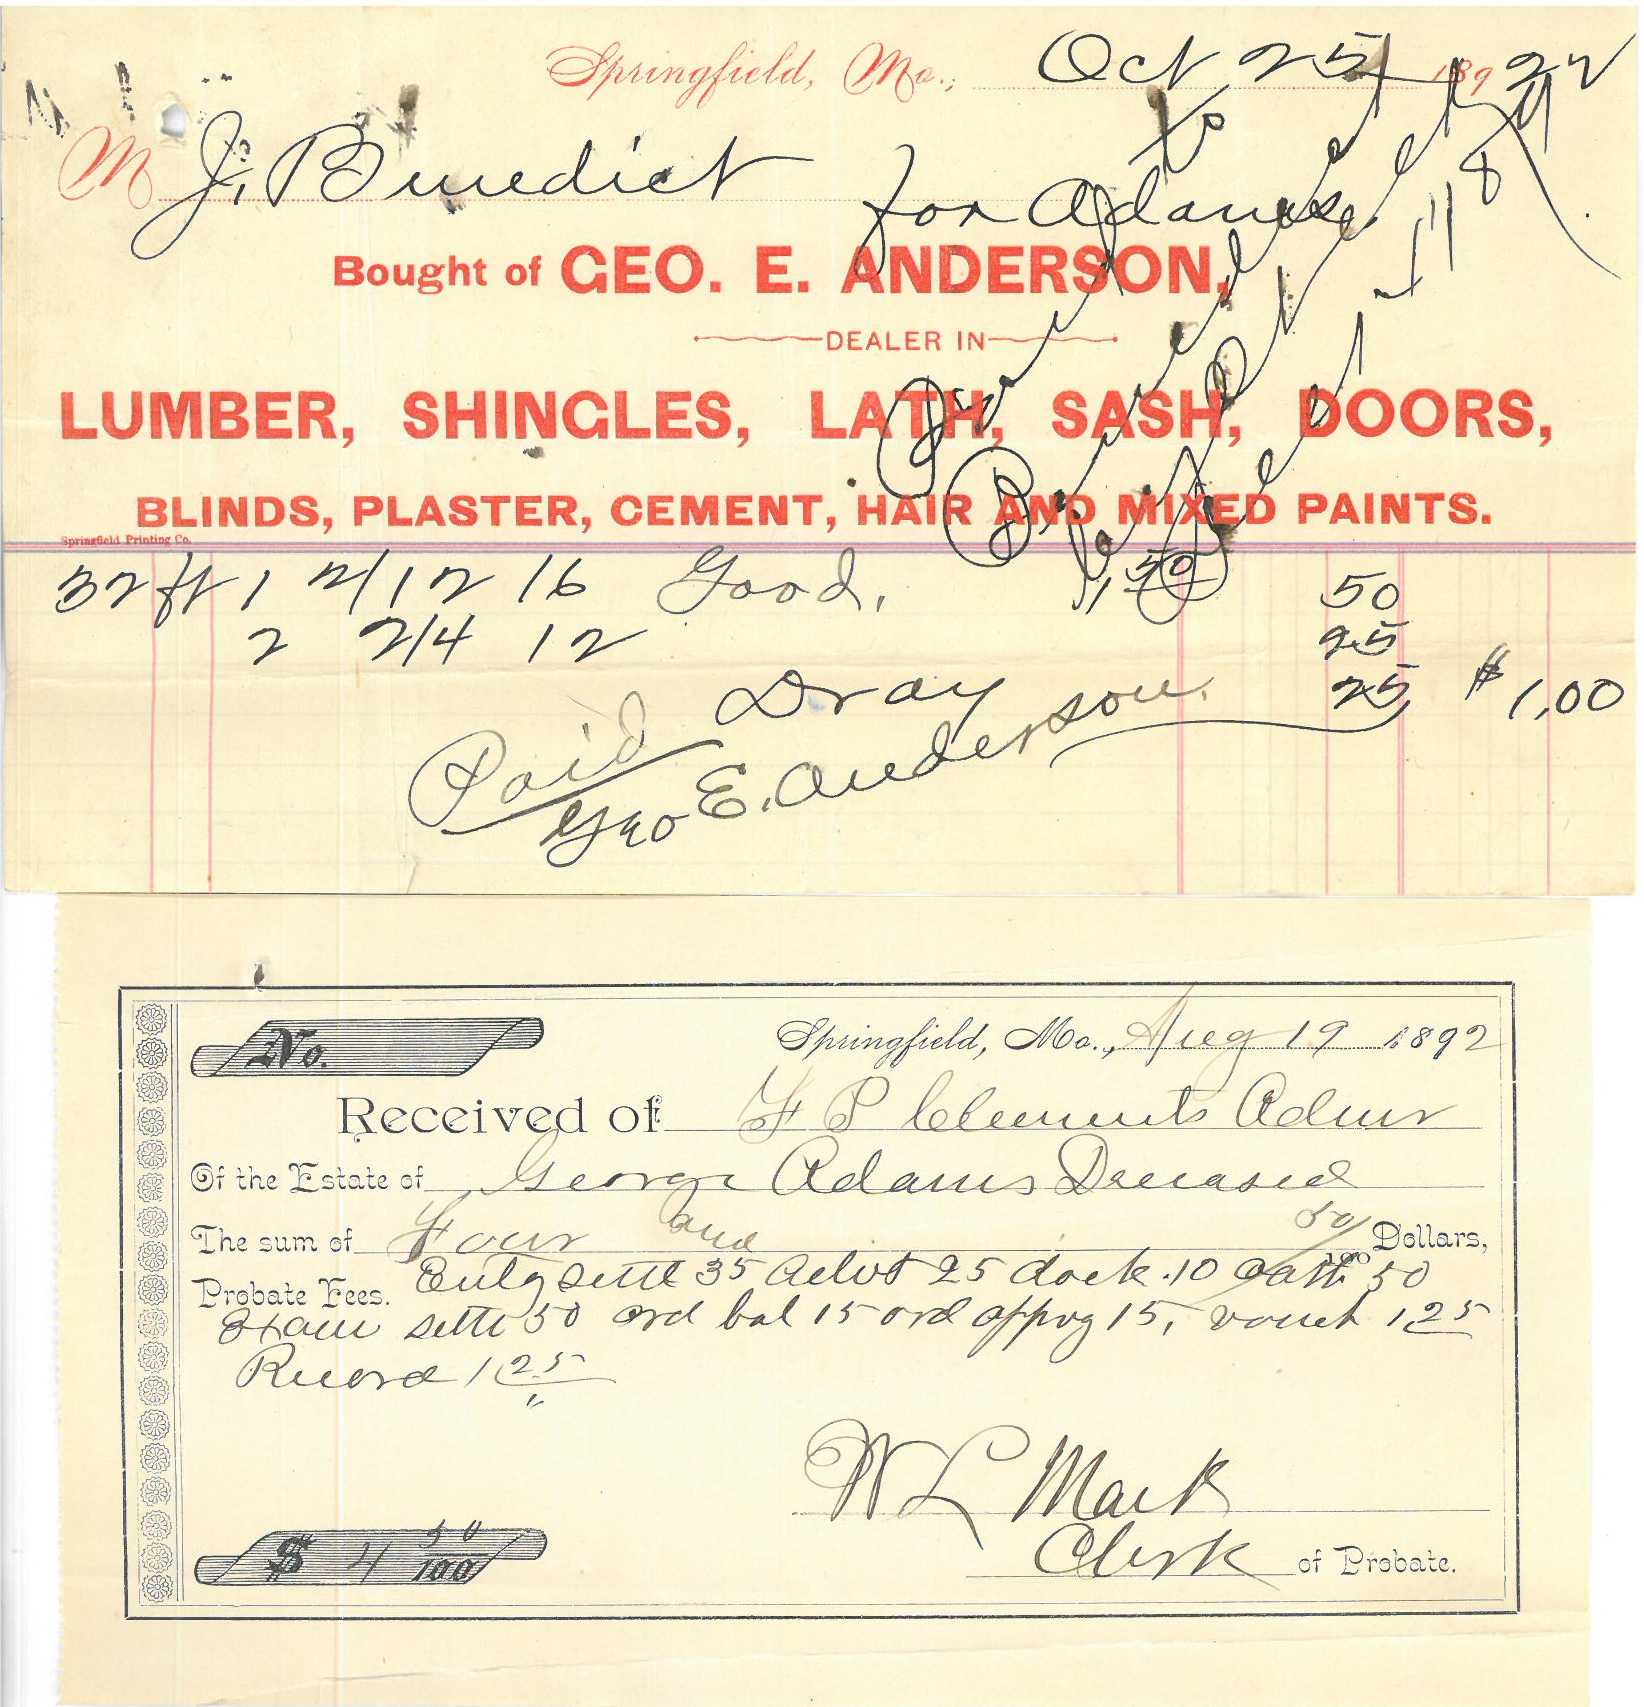 Springfield, Mo., Oct 25 1892
M J. Benedict for Adams
Bought of GEO. E. ANDERSON,
DEALER IN
LUMBER, SHINGLES, LATH, SASH, DOORS,
BLINDS, PLASTER, CEMENT, HAIR AND MIXED PAINTS.
Springfield Printing Co.
32 ft 1 2/12 16 Good. 1 50 50
2 2/4 12 25
Dray 25 $1,00
Paid
Geo E. Anderson
No.
Springfield, Mo., Aug 19 1892
Received of F P Clements Admr
Of the Estate of George Adams Deceased
The sum of Four and 50/100 Dollars,
Probate Fees. Entg settl 35 Advt 25 dock .10 oath 50
Exam settl 50 ord bal 15 ord apprvg 15, vouch 1 25
Record 1 25
W L Mack
$ 4 50/100
Clerk of Probate.